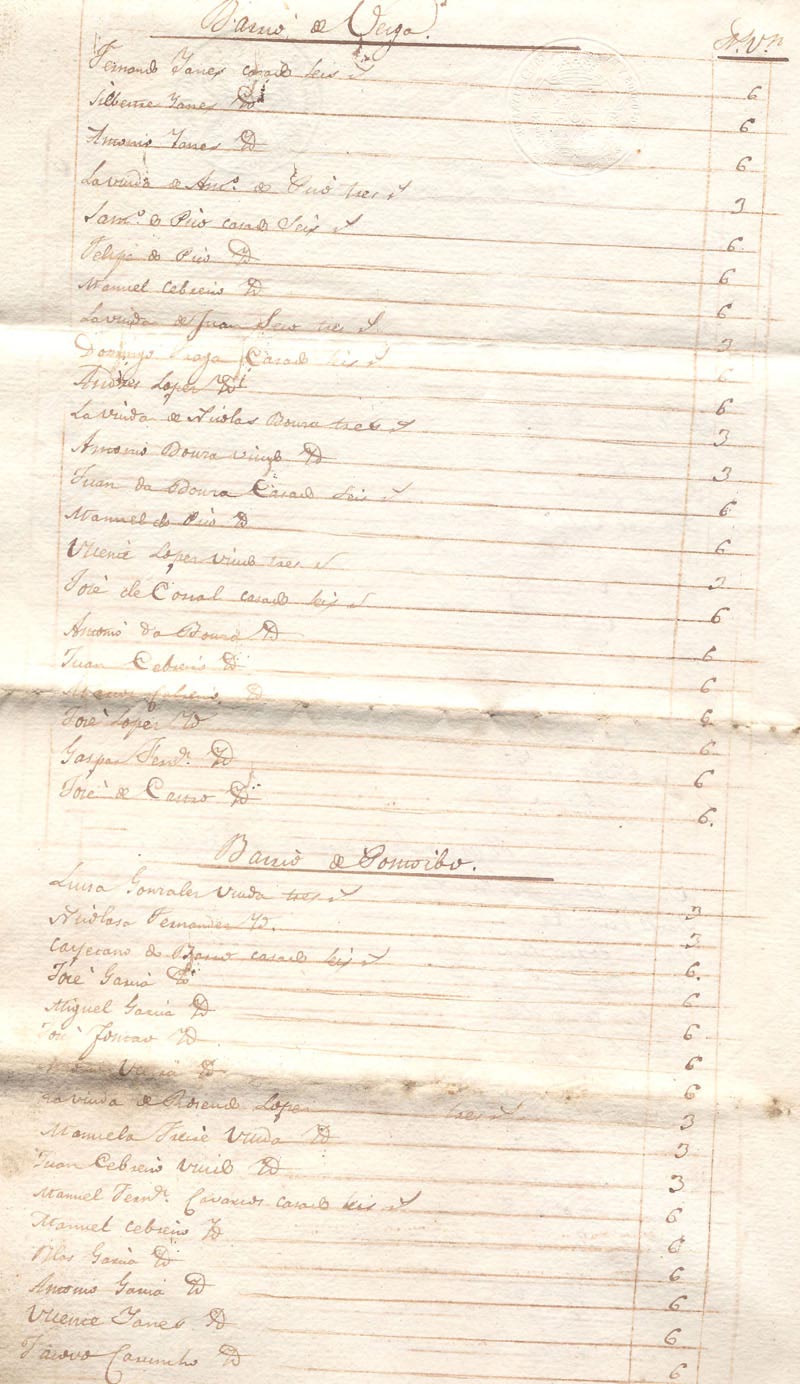 Barrio de Veiga. Rs. Vn
Fernando Yanes casado seis rs 6
Silbestre Yanes Yd 6
Antonio Yanes Yd 6
La viuda de Anto. do Pico tres rs 3
Santo. do Pico casado Seis rs 6
Felipe do Pico Yd 6
Manuel Cebreiro Yd 6
La viuda de Juan Seco tres rs 3
Domingo Fraga Casado seis rs 6
Andres Lopez Yd 6
La viuda de Nicolas Boura tres rs 3
Antonio Boura viudo Yd 3
Juan da Boura Casado Seis rs 6
Manuel do Pico Yd 6
Vicente Lopez viudo tres rs 3
José de Corral casado seis rs 6
Antonio da Boura Yd 6
Juan Cebreiro Yd 6
Cebreiro Yd 6
José Lopez Yd 6
Gaspar Fernz. Yd 6
José de Castro Yd 6.
Barrio de
Luisa Gonzalez Viuda tres rs 3
Nicolasa Fernandez Yd. 3
Cayetano do Barro casado seis rs 6.
José Garcia Yd 6
Miguel Garcia Yd 6
José Fontao Yd 6
Yd 6
La viuda de Rosendo Lopez tres rs 3
Manuela Freire Viuda Yd 3
Juan Cebreiro Viudo Yd 3
Manuel Fernz. casado seis rs 6
Manuel Cebreiro Yd 6
Blas Garcia Yd 6
Antonio Garcia Yd 6
Vicente Yanes Yd 6
Yd 6